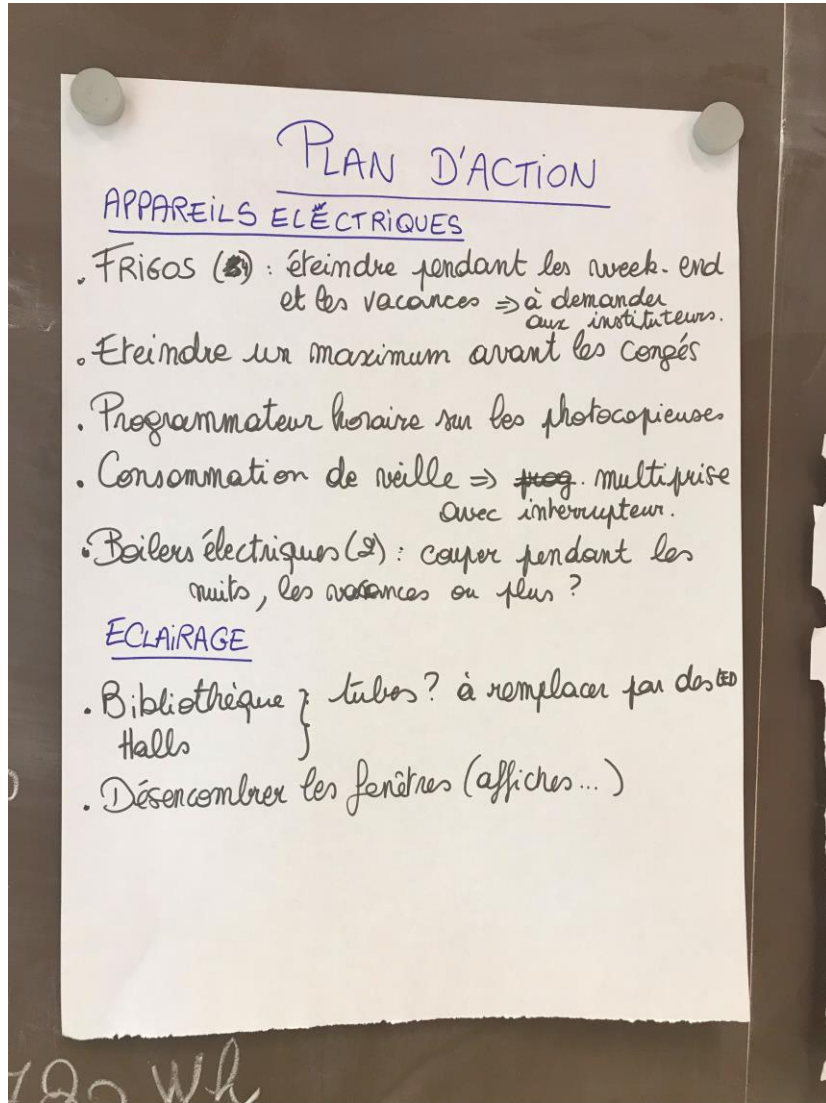 PLAN D'ACTION
APPAREILS ELÉCTRIQUES
. FRIGOS ( ) : éteindre pendant les week-end
et les vacances => à demander
aux instituteurs.
. Eteindre un maximum avant les congés
. Programmateur horaire sur les photocopieuses
. Consommation de veille => prog. multiprise
avec interrupteur.
. Boilers électriques (2) : couper pendant les
nuits, les vacances ou plus ?
ECLAIRAGE
. Bibliothèque } tubes ? à remplacer par des LED
Halls
. Désencombrer les fenêtres (affiches...)
Wh